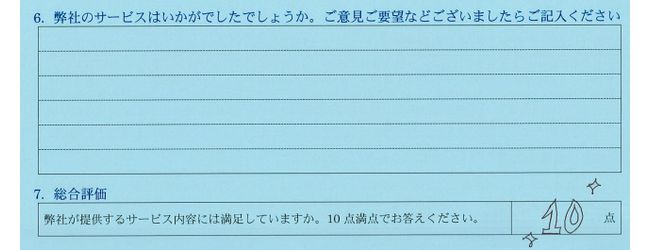 6. 弊社のサービスはいかがでしたでしょうか。ご意見ご要望などございましたらご記入ください
7. 総合評価
弊社が提供するサービス内容には満足していますか。10 点満点でお答えください。 10 点